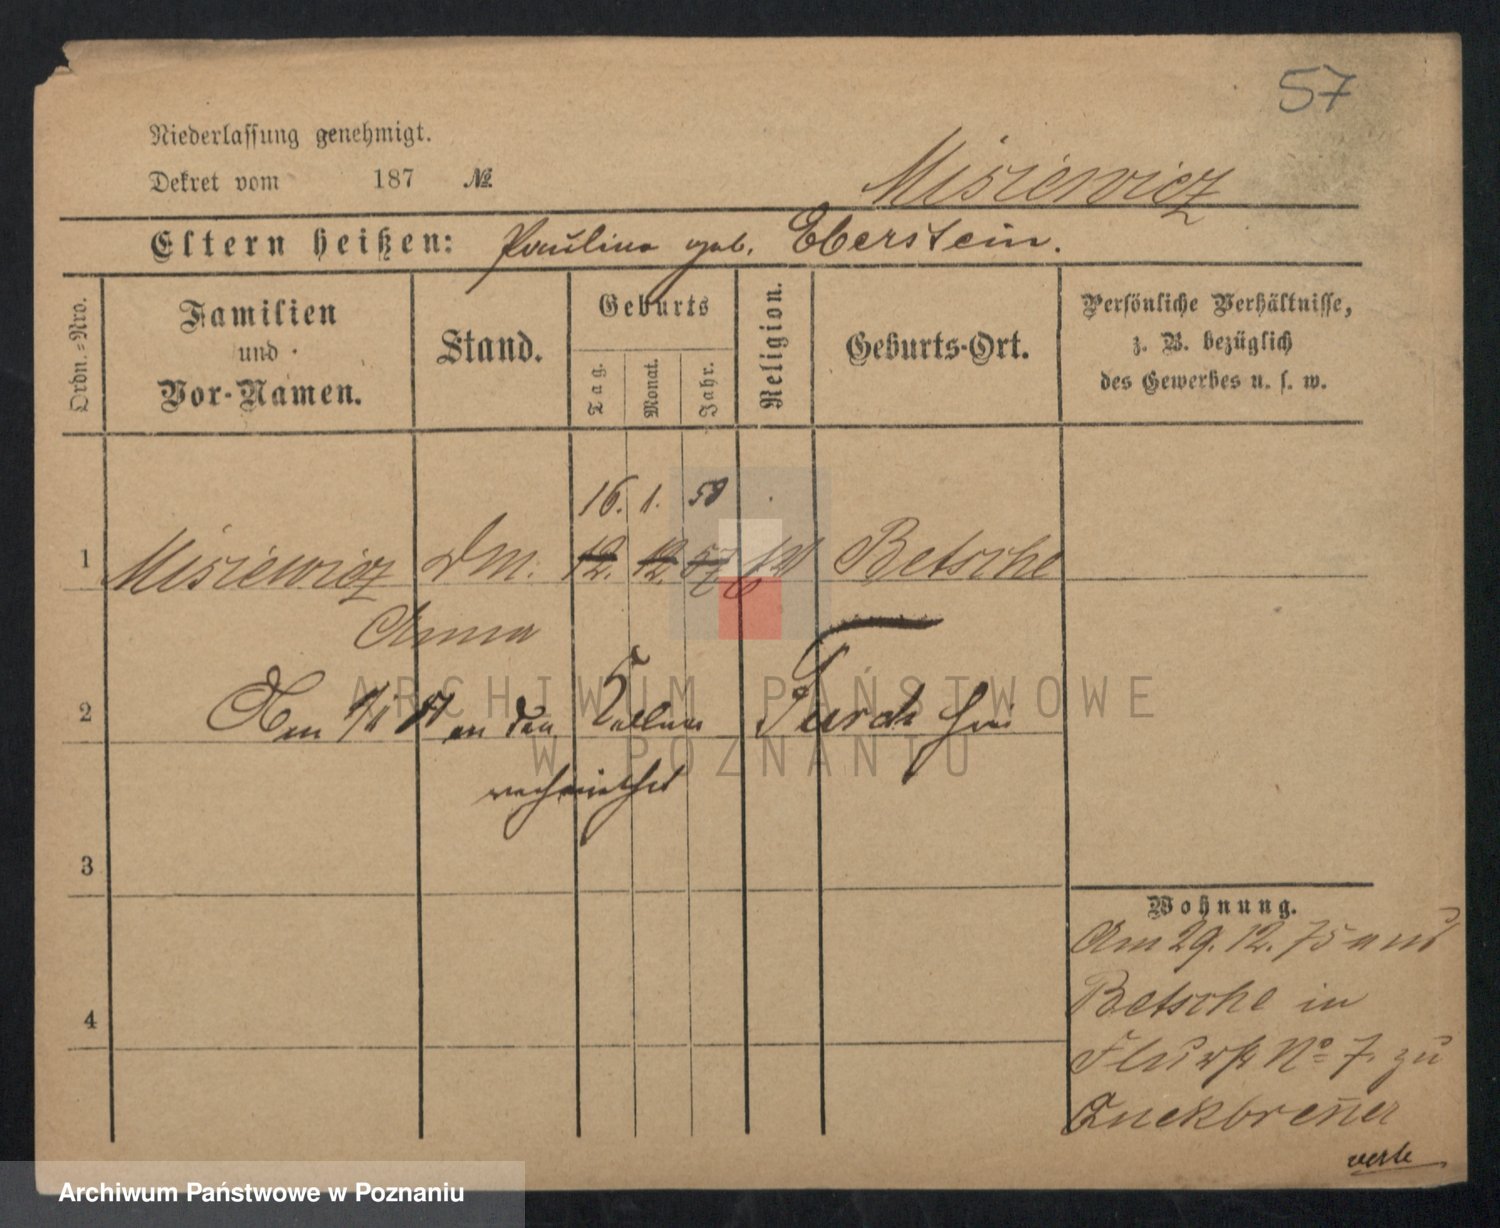 57
Niederlassung genehmigt.
Dekret vom 187 №
Misiewicz
Eltern heißen: Pauline geb. Eberstein.
Ordn.=Nro.
Familien
und
Vor-Namen.
Stand.
Geburts
Tag.
Monat.
Jahr.
Religion.
Geburts-Ort.
Persönliche Verhältnisse,
z. B. bezüglich
des Gewerbes u. s. w.
16. 1. 58
1 Misiewicz Dm. 12. 12. 57 Betsche
Anna
2 Am an den
3
4
Wohnung.
Am 29. 12. 75 aus
Betsche in
Flurst No 7. zu
verte
ARCHIWUM PAŃSTWOWE
W POZNANIU
Archiwum Państwowe w Poznaniu